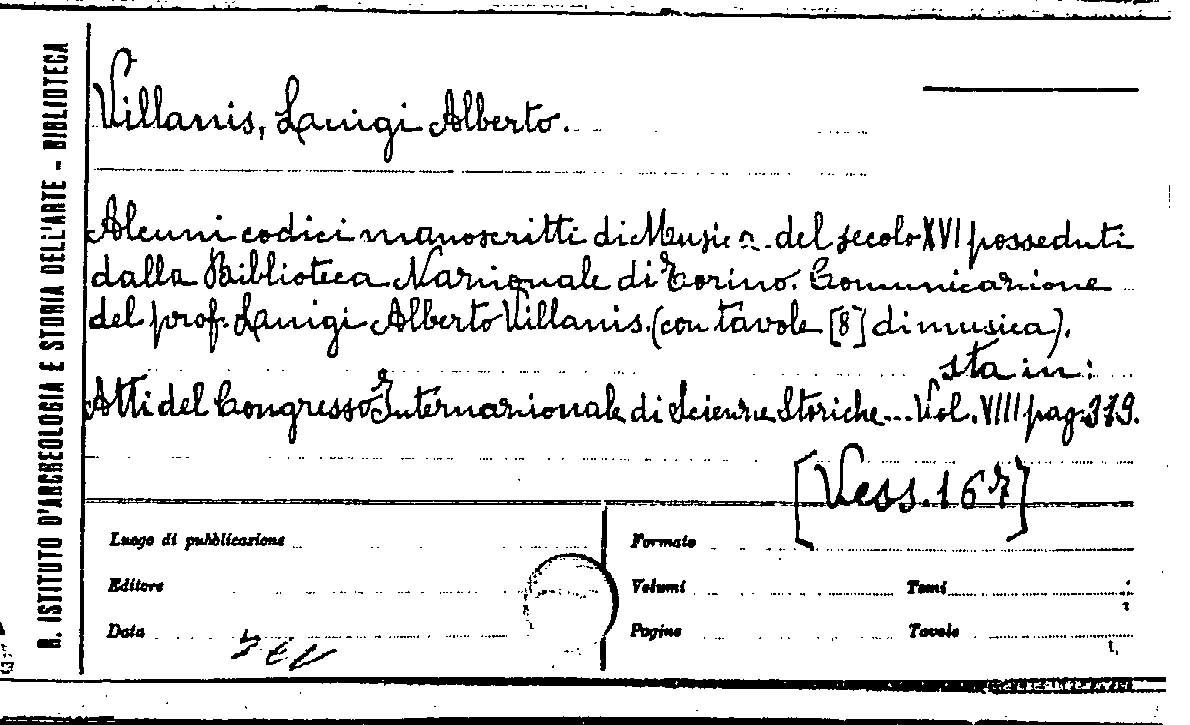 R. ISTITUTO D'ARCHEOLOGIA E STORIA DELL'ARTE - BIBLIOTECA
Villanis, Luigi Alberto.
Alcuni codici manoscritti di Musica del secolo XVI posseduti
dalla Biblioteca Nazionale di Torino. Comunicazione
del prof. Luigi Alberto Villanis. (con tavole [8] di musica).
sta in:
Atti del Congresso Internazionale di Scienze Storiche... Vol. VIII pag. 319.
[Vess. 167]
Luogo di pubblicazione
Formato
Editore
Volumi
Tomi
Data
Pagine
Tavole